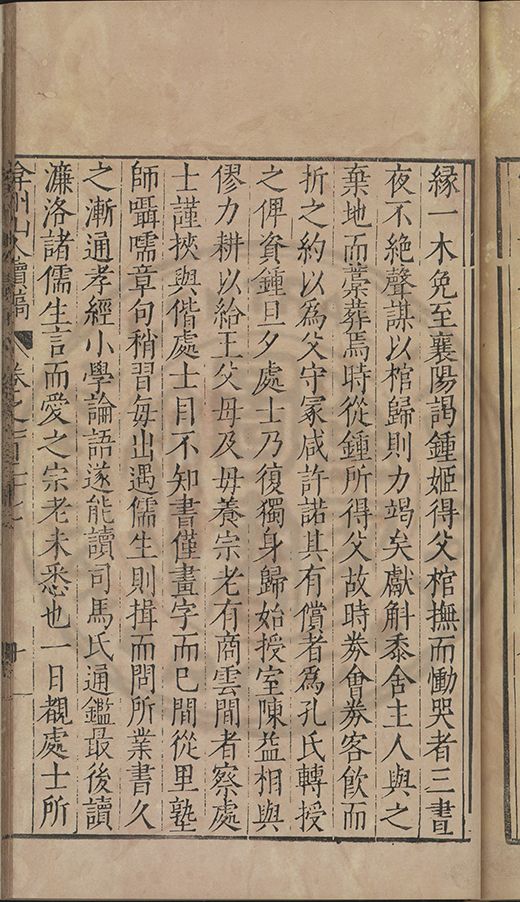 縁一木免至襄陽謁鍾姬得父棺撫而慟哭者三晝
夜不絶聲謀以棺歸則力竭矣獻斛黍舍主人與之
棄地而藁葬焉時從鍾所得父故時劵會劵客飲而
折之約以爲父守冢咸許諾其有償者爲孔氏轉授
之俾貧鍾旦夕處士乃復獨身歸始授室陳益相與
僇力耕以給王父母及毋養宗老有商雲間者察處
士謹挾與偕處士目不知書僅畫字而已間從里塾
師囁嚅章句稍習每出遇儒生則揖而問所業書久
之漸通孝經小學論語遂能讀司馬氏通鑑最後讀
濂洛諸儒生言而愛之宗老未悉也一日覩處士所
弇州山人續稿 卷之百二十七